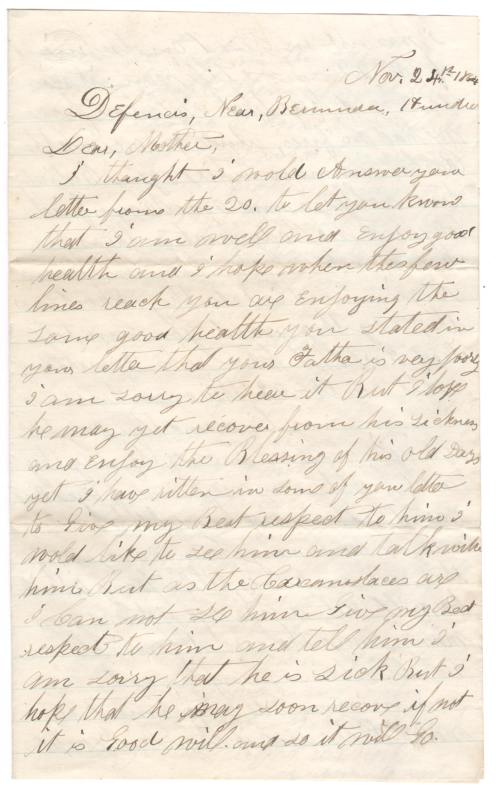 Nov. 24th 1864
Defencis, Near, Bermuda, Hundre
Dear, Mother,
I thaught I wold Answer your
letter from the 20. to let you know
that I am well and Enjoy good
health and I hope when thes few
lines reach you are Enjoying the
same good health you stated in
your letter that your Father is very poorly
I am sorry to hear it But I hope
he may yet recover from his sickness
and Enjoy the Blessing of his old Days
yet I have ritten in some of you letter
to Give my Best respect to him I
wold like to see him and talk with
him But as the are
I Can not see him Give my Best
respect to him and tell him I
am sorry that he is sick But I
hope that he may soon recove if not
it is Good will and so it will Go.